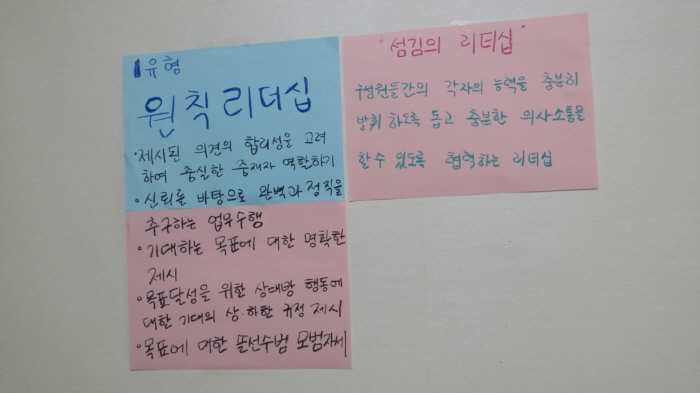 1유형
원칙리더십
•제시된 의견의 합리성을 고려
하여 충실한 중재자 역할하기
•신뢰를 바탕으로 완벽과 정직을
추구하는 업무수행
•기대하는 목표에 대한 명확한
제시
•목표달성을 위한 상대방 행동에
대한 기대의 상·하한 규정 제시
•목표에 대한 솔선수범 모범자세
"섬김의 리더십"
구성원들간의 각자의 능력을 충분히
발휘 하도록 돕고 충분한 의사소통을
할 수 있도록 협력하는 리더십